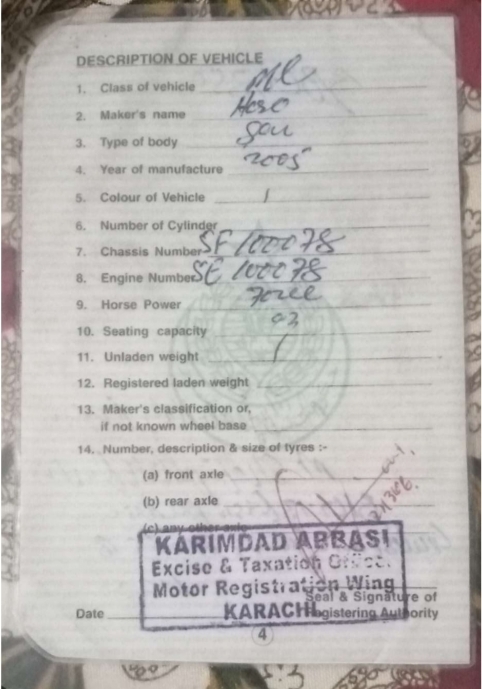 DESCRIPTION OF VEHICLE
1. Class of vehicle
2. Maker's name
3. Type of body
4. Year of manufacture 2005
5. Colour of Vehicle
6. Number of Cylinder
7. Chassis Number SF 100078
8. Engine Number SE 100078
9. Horse Power
10. Seating capacity 02
11. Unladen weight
12. Registered laden weight
13. Maker's classification or,
if not known wheel base
14. Number, description & size of tyres :-
(a) front axle
(b) rear axle
(c) any other axle
KARIMDAD ABBASI
Excise & Taxation Officer.
Motor Registration Wing
Seal & Signature of
Date KARACHI Registering Authority
4